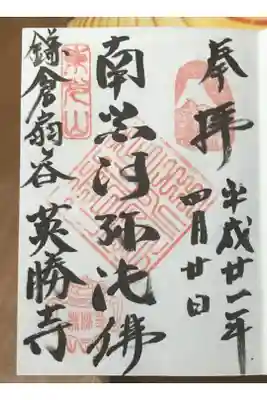 奉拝
平成廿一年
四月廿日
南無阿弥陀佛
東光山
鎌倉扇谷 英勝寺